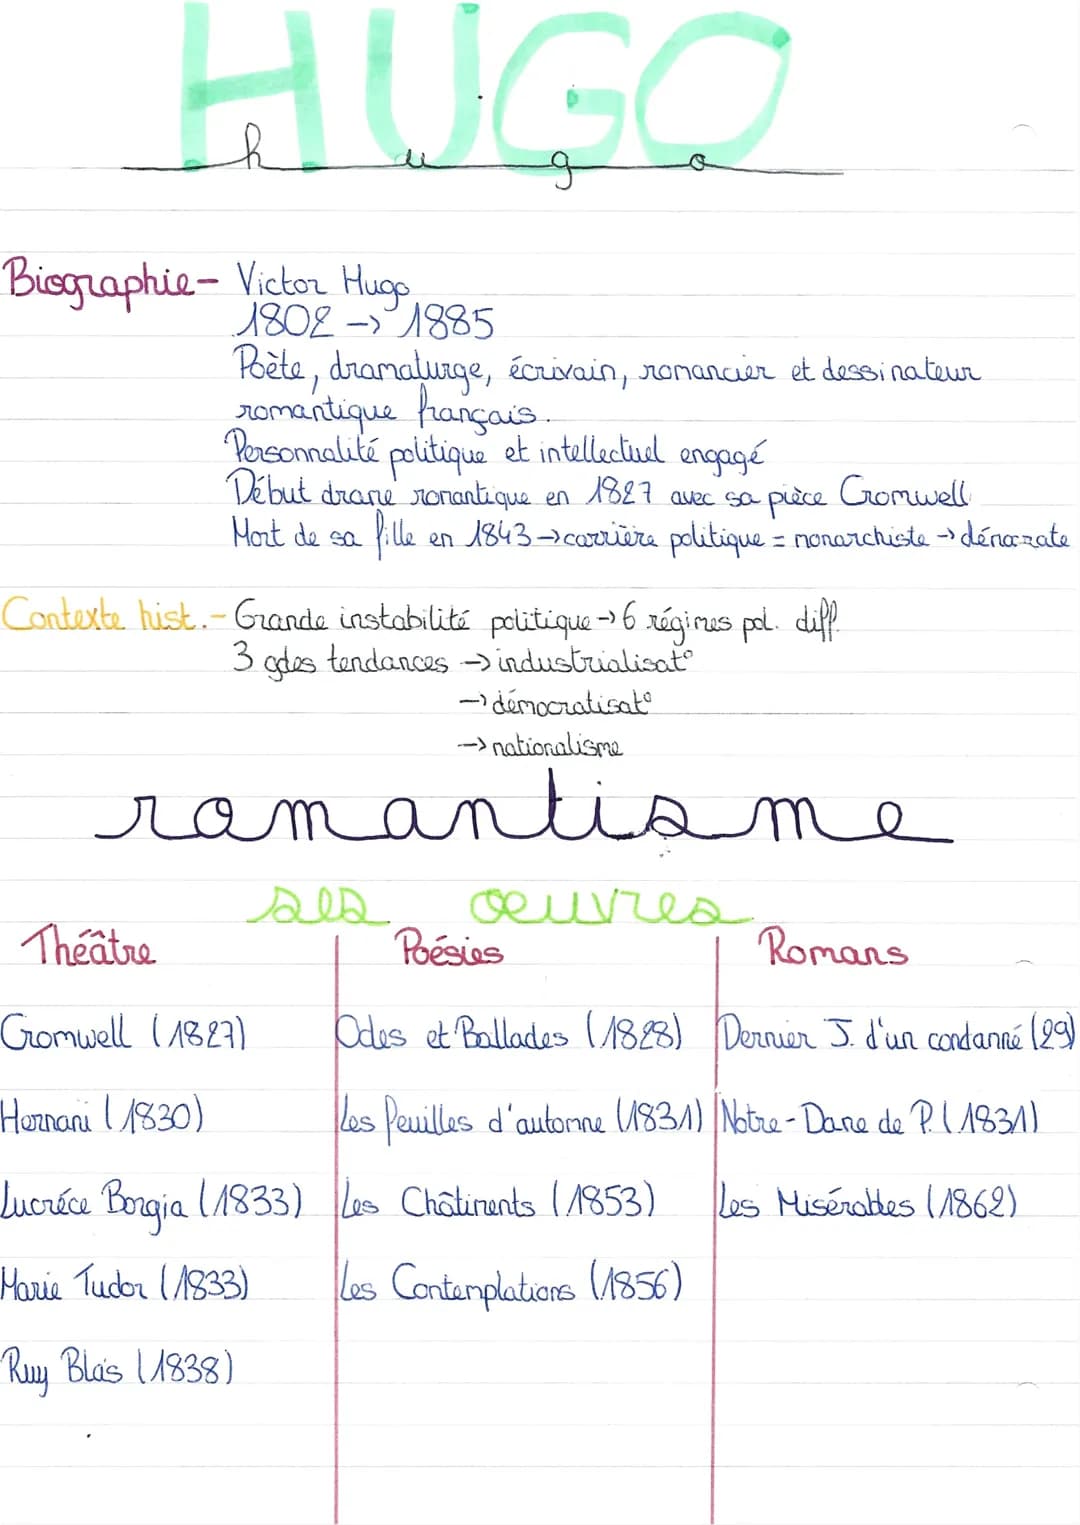 HUGO
hugo
Biographie- Victor Hugo
1802 -> 1885
Poète, dramaturge, écrivain, romancier et dessinateur
romantique français.
Personnalité politique et intellectuel engagé
Début drame romantique en 1827 avec sa pièce Cromwell
Mort de sa fille en 1843 -> carrière politique = monarchiste -> démocrate
Contexte hist.- Grande instabilité politique -> 6 régimes pol. diff.
3 gdes tendances -> industrialisat°
-> démocratisat°
-> nationalisme
romantisme
ses oeuvres
Théâtre Poésies Romans
Cromwell (1827) Odes et Ballades (1828) Dernier J. d'un condamné (29)
Hernani (1830) Les Feuilles d'automne (1831) Notre-Dame de P. (1831)
Lucréce Borgia (1833) Les Châtiments (1853) Les Misérables (1862)
Marie Tudor (1833) Les Contemplations (1856)
Ruy Blas (1838)